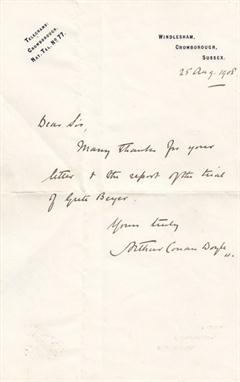 TELEGRAMS:
CROWBOROUGH.
NAT. TEL. Nº 77.
WINDLESHAM,
CROWBOROUGH,
SUSSEX.
25 Aug. 1908
Dear Sir,
Many thanks for your
letter & the report of the trial
of Grete Beyer.
Yours truly
Arthur Conan Doyle